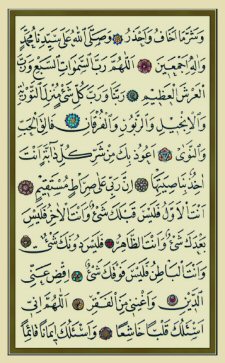 وَشَرِّمَا اَخَافُ وَاَحْذَرُ وَصَلَّى اللّٰهُ عَلٰى سَيِّدِنَا مُحَمَّدٍ
وَاٰلِهٖ اَجْمَعِينَ اَللّٰهُمَّ رَبَّ السَّمٰوَاتِ السَّبْعِ وَرَبَّ
الْعَرْشِ الْعَظِيمِ رَبَّنَا وَرَبَّ كُلِّ شَىْءٍ مُنْزِلَ التَّوْرٰيةِ
وَالْاِنْجِيلِ وَالزَّبُورِ وَالْفُرْقَانِ فَالِقَ الْحَبِّ
وَالنَّوٰى اَعُوذُ بِكَ مِنْ شَرِّ كُلِّ دَٓابَّةٍ اَنْتَ
اٰخِذٌ بِنَاصِيَتِهَا اِنَّ رَبِّى عَلٰى صِرَاطٍ مُسْتَقِيمٍ
اَنْتَ الْاَوَّلُ فَلَيْسَ قَبْلَكَ شَىْءٌ وَاَنْتَ الْاٰخِرُ فَلَيْسَ
بَعْدَكَ شَىْءٌ وَاَنْتَ الظَّاهِرُ فَلَيْسَ دُونَكَ شَىْءٌ
وَاَنْتَ الْبَاطِنُ فَلَيْسَ فَوْقَكَ شَىْءٌ اِقْضِ عَنِّى
الدَّيْنَ وَاَغْنِنِى مِنَ الْفَقْرِ اَللّٰهُمَّ اِنِّى
اَسْئَلُكَ قَلْبًا خَاشِعًا وَاَسْئَلُكَ اِيمَانًا دَٓائِمًا